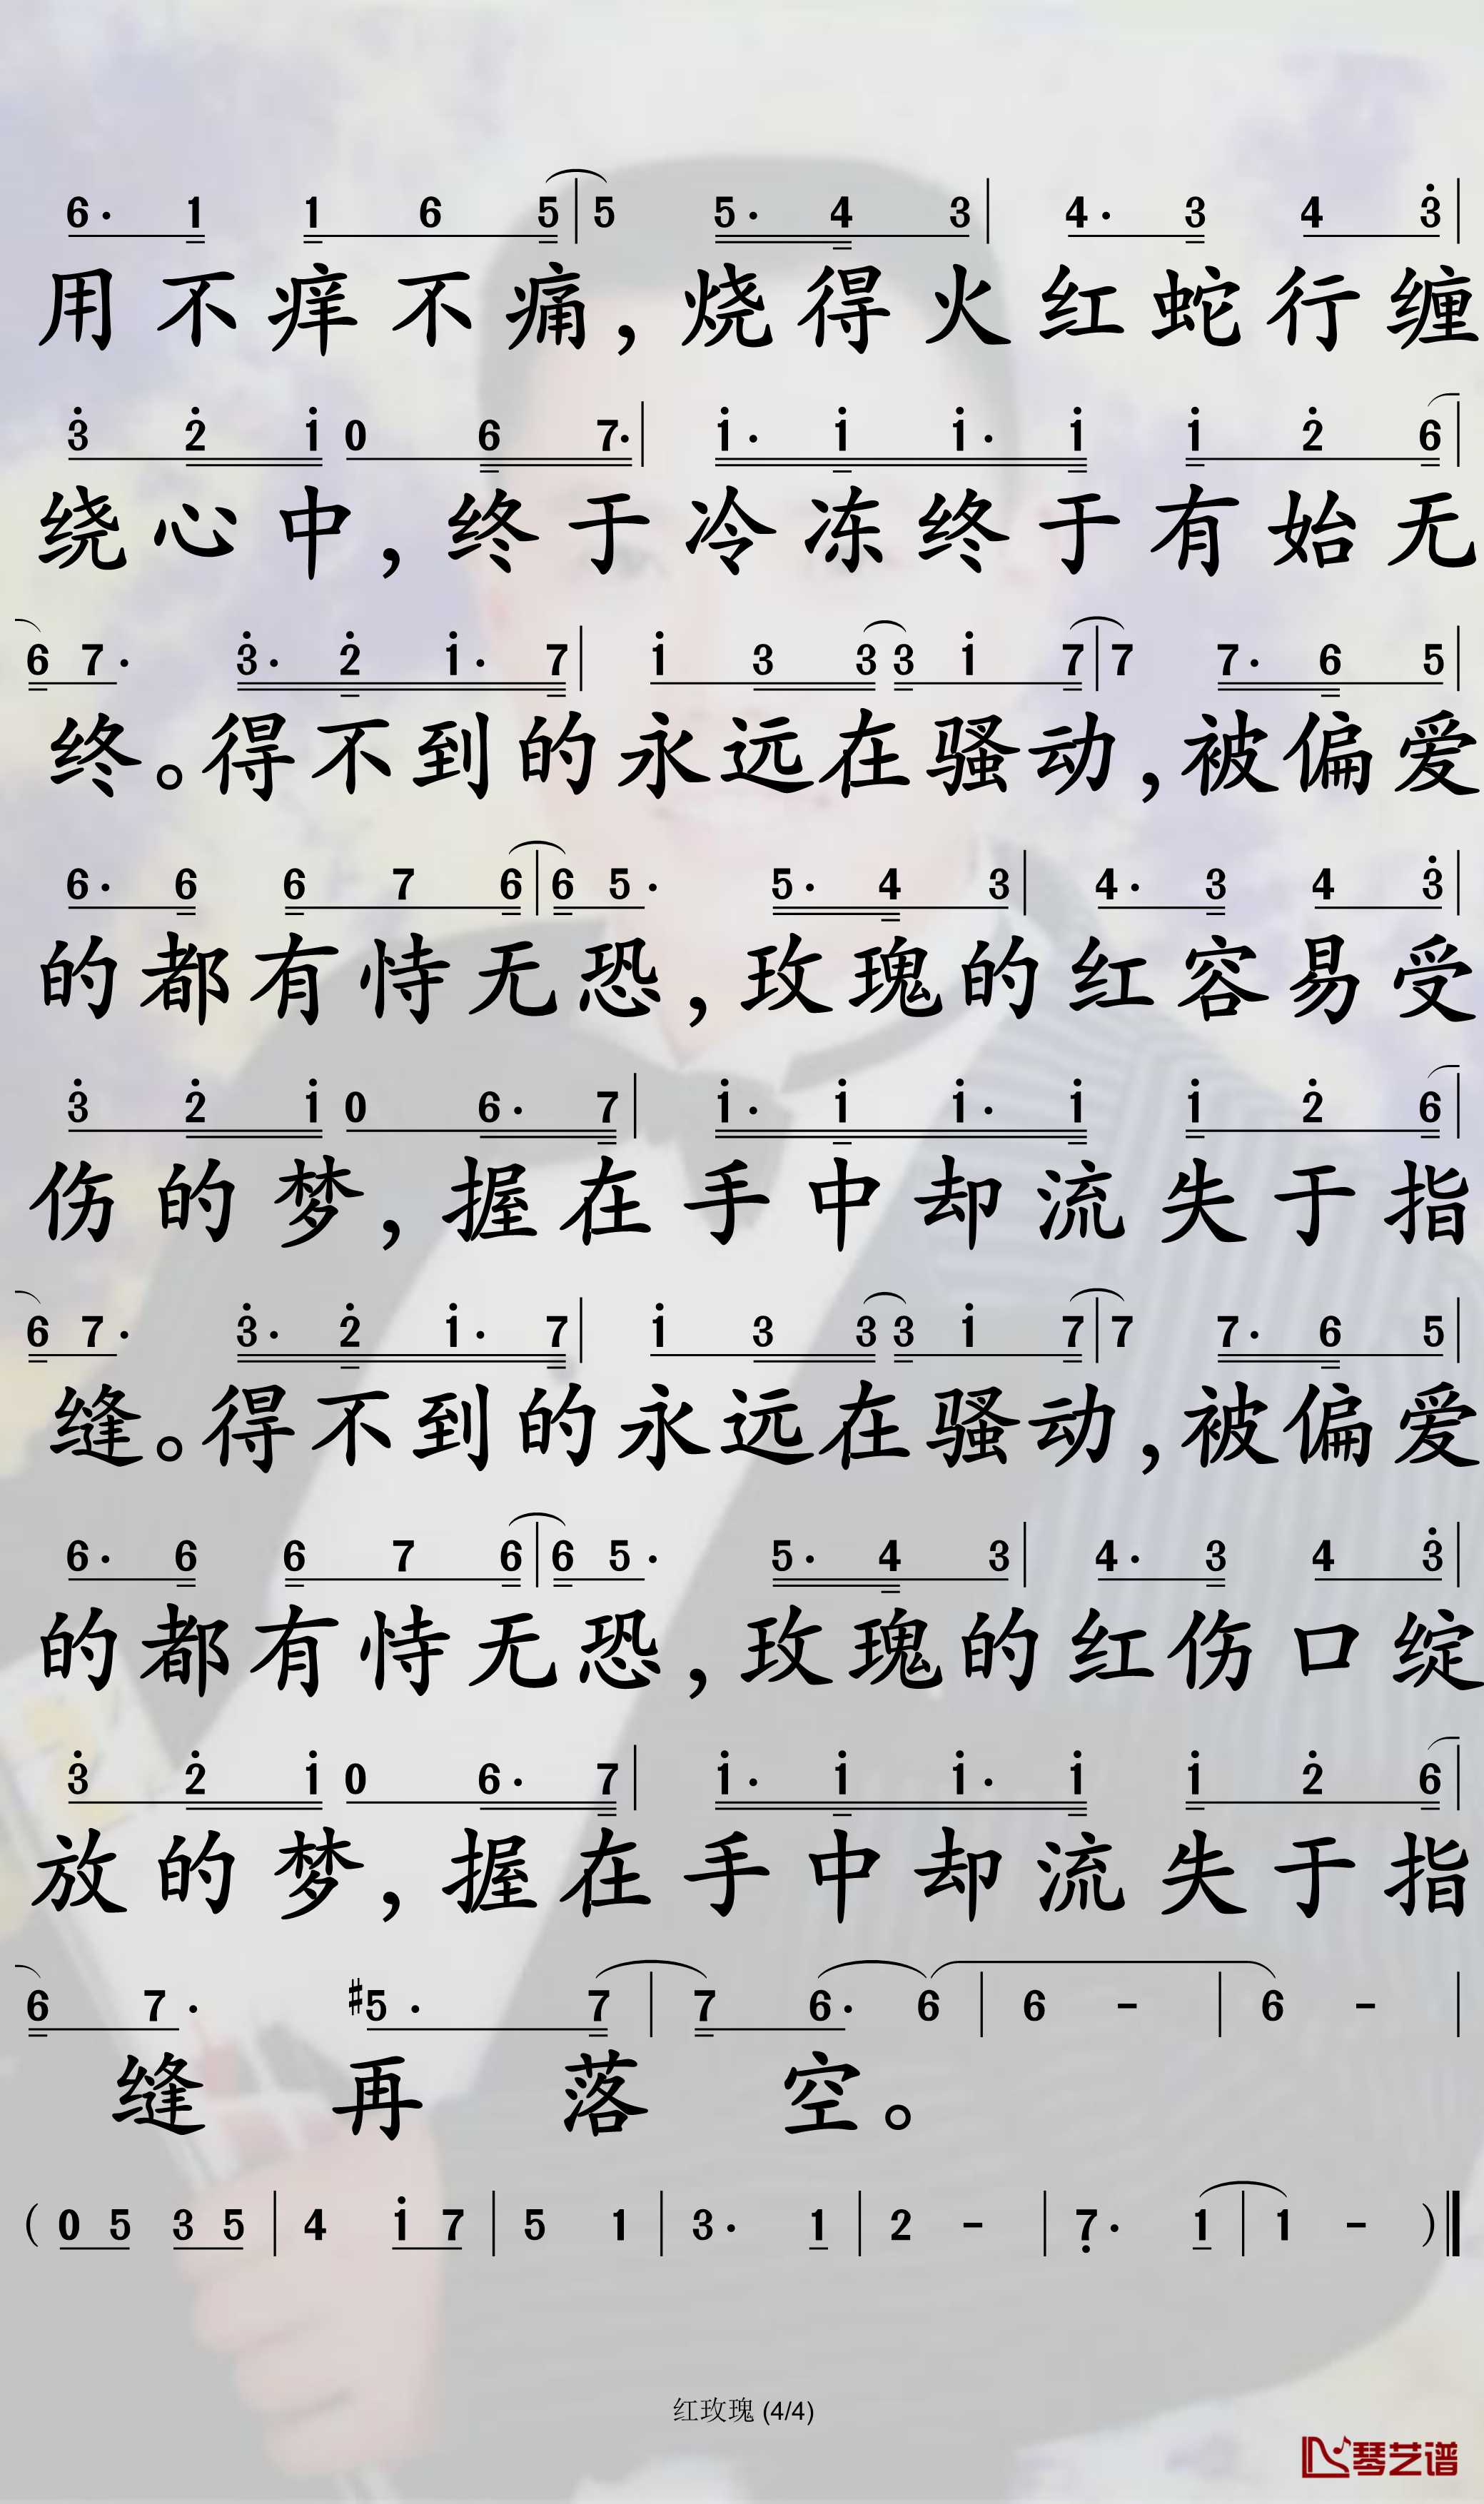 6· 1 1 6 5 | 5 5· 4 3 | 4· 3 4 3̇ |
用不痒不痛，烧得火红蛇行缠
3̇ 2̇ 1̇ 0 6 7· | 1̇· 1̇ 1̇· 1̇ 1̇ 2̇ 6 |
绕心中，终于冷冻终于有始无
6 7· 3̇· 2̇ 1̇· 7 | 1̇ 3 3 3 1̇ 7 | 7 7· 6 5 |
终。得不到的永远在骚动，被偏爱
6· 6 6 7 6 | 6 5· 5· 4 3 | 4· 3 4 3̇ |
的都有恃无恐，玫瑰的红容易受
3̇ 2̇ 1̇ 0 6· 7 | 1̇· 1̇ 1̇· 1̇ 1̇ 2̇ 6 |
伤的梦，握在手中却流失于指
6 7· 3̇· 2̇ 1̇· 7 | 1̇ 3 3 3 1̇ 7 | 7 7· 6 5 |
缝。得不到的永远在骚动，被偏爱
6· 6 6 7 6 | 6 5· 5· 4 3 | 4· 3 4 3̇ |
的都有恃无恐，玫瑰的红伤口绽
3̇ 2̇ 1̇ 0 6· 7 | 1̇· 1̇ 1̇· 1̇ 1̇ 2̇ 6 |
放的梦，握在手中却流失于指
6 7· #5· 7 | 7 6· 6 | 6 - | 6 - |
缝再落空。
(0 5 3 5 | 4 1̇ 7 | 5 1 | 3· 1 | 2 - | 7̣· 1 | 1 - )‖
红玫瑰 (4/4)
琴艺谱